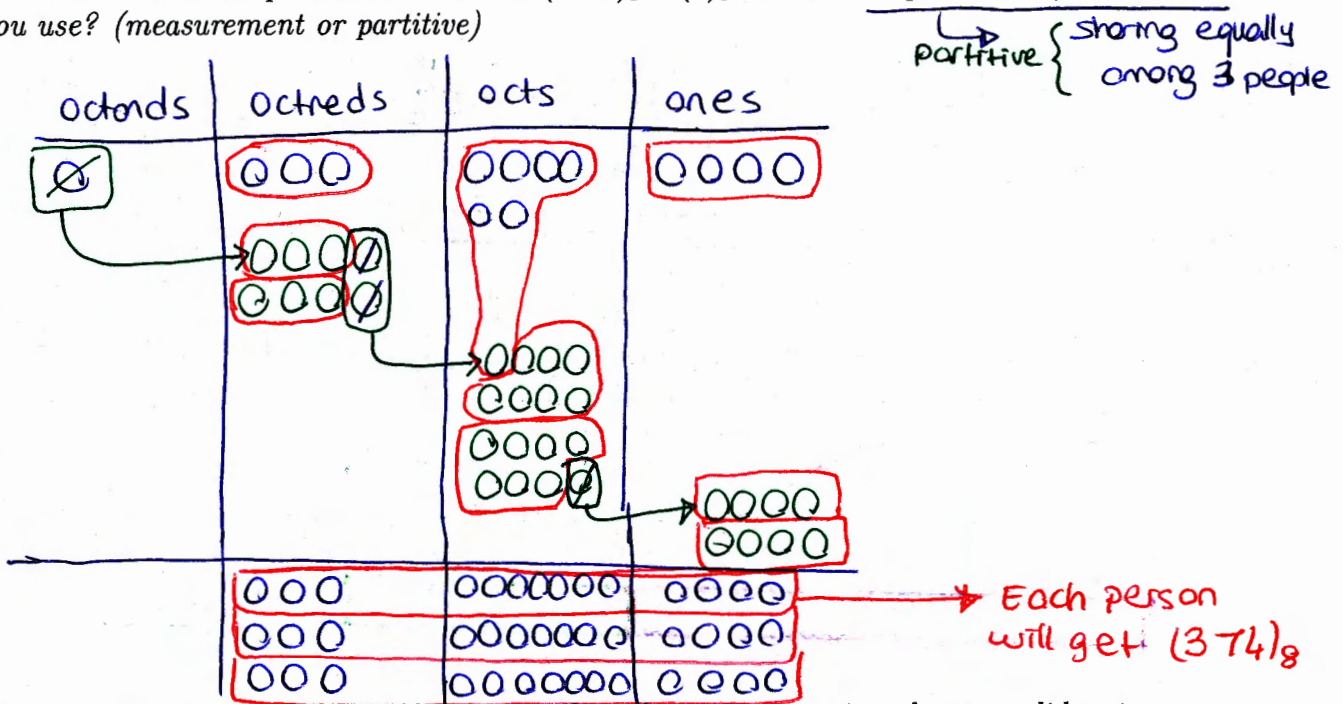 ou use? (measurement or partitive)
partitive { sharing equally
among 3 people
octonds octreds octs ones
Each person
will get (374)₈